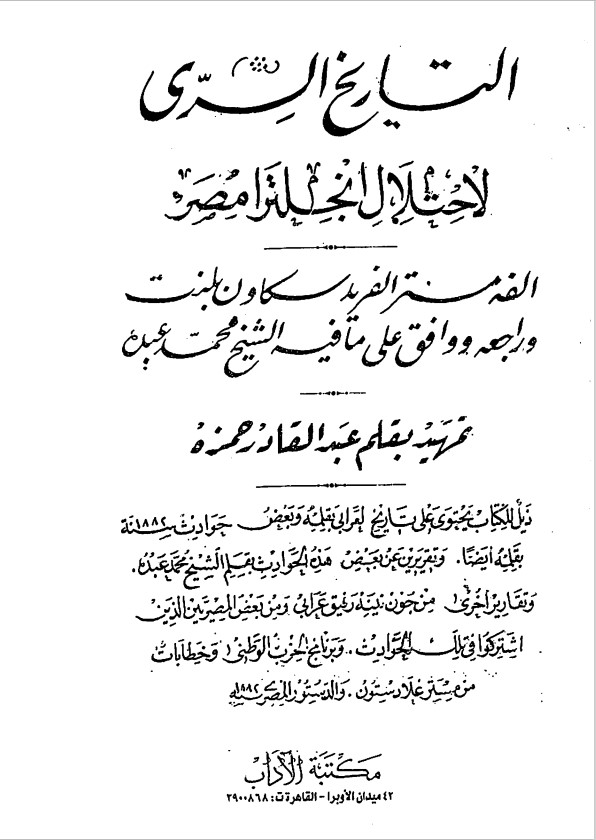 التاريخ السرى
لاحتلال انجلترا مصر
الفه مستر الفريد سكاون بلنت
وراجعه ووافق على ما فيه الشيخ محمد عبده
تمهيد بقلم عبد القادر حمزه
ذيل للكتاب يحتوى على تاريخ لعرابى بقلمه وبعض حوادث سنة ١٨٨٢
بقلمه ايضًا. وتقريرين عن بعض هذه الحوادث بقلم الشيخ محمد عبده.
وتقارير اخرى من جون نينه رفيق عرابى ومن بعض المصريين الذين
اشتركوا فى تلك الحوادث. وبرنامج الحزب الوطنى وخطابات
من مستر غلادستون. والدستور المصرى سنة ١٨٨٢
مكتبة الآداب
٤٢ ميدان الأوبرا - القاهرة ت: ٣٩٠٠٨٦٨